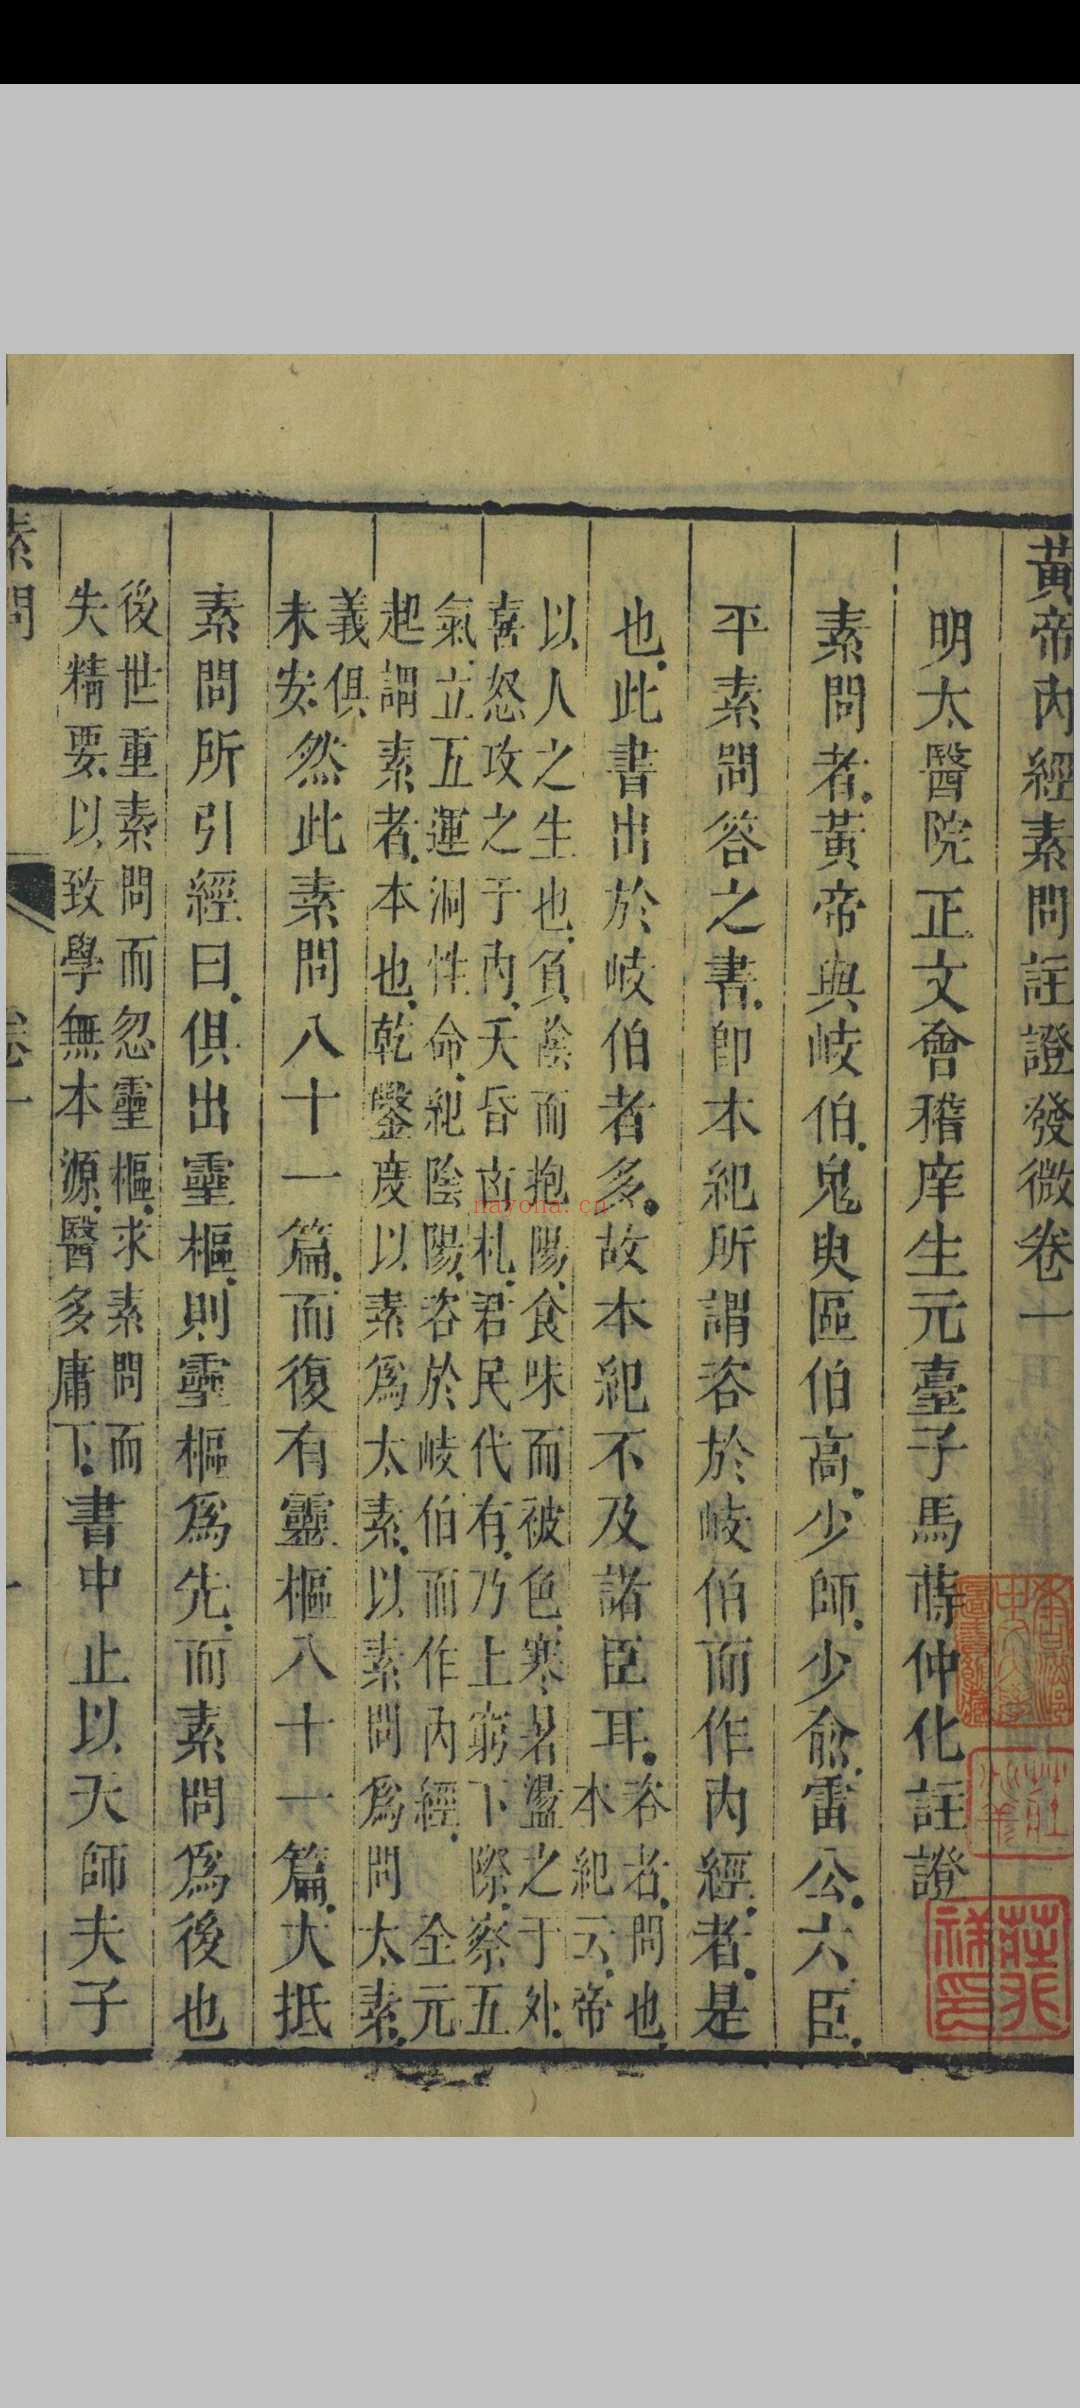 黃帝內經素問註證發微卷一
明太醫院正文會稽庠生元臺子馬蒔仲化註證
素問者黃帝與岐伯鬼臾區伯高少師少俞雷公六臣
平素問答之書即本紀所謂咨於岐伯而作內經者是
也此書出於岐伯者多故本紀不及諸臣耳
咨者問也
本紀云帝
以人之生也負陰而抱陽食味而被色寒暑盪之于外
喜怒攻之于內夭昏凶札君民代有乃上窮下際察五
氣立五運洞性命紀陰陽咨於岐伯而作內經 全元
起謂素者本也乾鑿度以素爲太素以素問爲問太素
義俱
未安
然此素問八十一篇而復有靈樞八十一篇大抵
素問所引經曰俱出靈樞則靈樞爲先而素問爲後也
後世重素問而忽靈樞求素問而
失精要以致學無本源醫多庸下
書中止以天師夫子
素問
卷一
一
nayona.cn